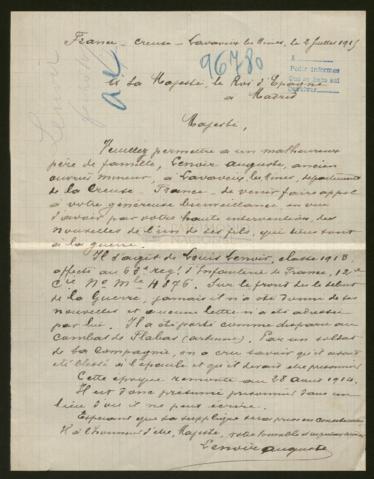 France - Creuse - Lavaveix les Mines, le 2 Juillet 1915
96780
A
Pedir informes
A Sa Majesté, le Roi d'Espagne
à Madrid
Majesté,
Veuillez permettre à un malheureux
père de famille, Lenoir Auguste, ancien
ouvrier mineur, à Lavaveix les Mines, département
de la Creuse - France - de venir faire appel
à votre généreuse bienveillance en vue
d'avoir par votre haute intervention, des
nouvelles de l'un de ses fils, qui tous sont
à la guerre.
Il s'agit de Louis Lenoir, classe 1913,
affecté au 68e reg. d'Infanterie de France, 12e
Cie No Mle 4876. Sur le front dès le début
de la Guerre, jamais il n'a été donné de ses
nouvelles et aucune lettre n'a été adressée
par lui. Il a été porté comme disparu au
combat de (Ardenne). Par un soldat
de sa Compagnie, on a cru savoir qu'il avait
été blessé à l'épaule et qu'il devait être prisonnier
Cette époque remonte au 28 août 1914.
Il est donc présumé prisonnier dans un
lieu d'où il ne peut écrire.
Espérant que sa supplique sera prise en considération
Il a l'honneur d'être, Majesté, votre humble et
Lenoir Auguste